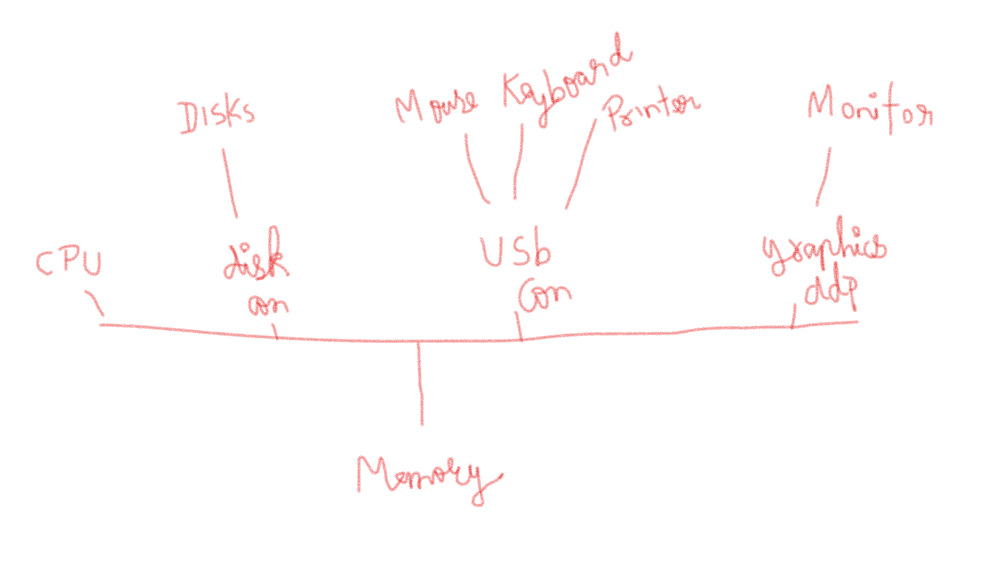 Disks
Mouse Keyboard Printer
Monitor
CPU
disk
con
USb
Con
graphics
adp
Memory